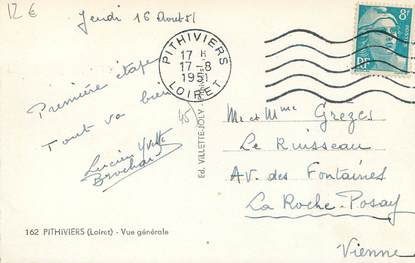 12 €
Jeudi 16 Aout 51
PITHIVIERS
17 H
17-8
1951
LOIRET
8F
RF
Première étape
Tout va bien
Lucien Yvette
Brochard
45
Ed. VILLETTE-JOLY
162 PITHIVIERS (Loiret) - Vue générale
Mr et Mme Grèzes
Le Ruisseau
Av. des Fontaines
La Roche-Posay
Vienne